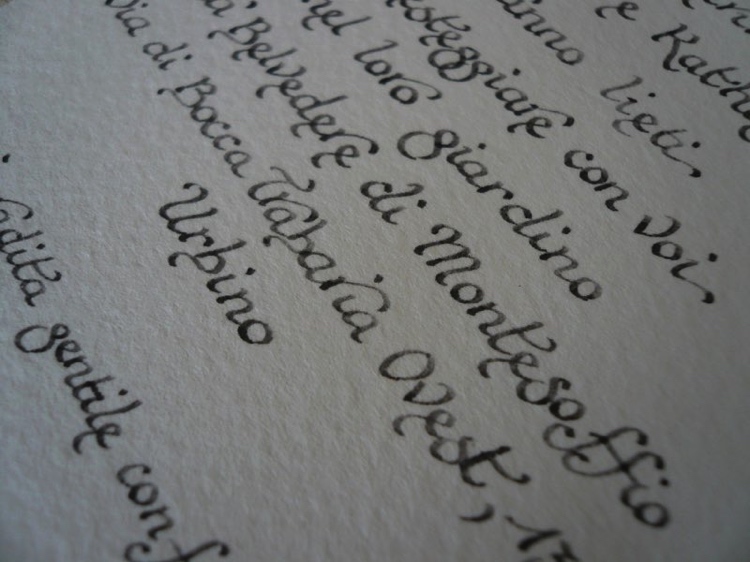 e Kath
anno lieti
esteggiare con voi,
nel loro giardino
Belvedere di Montesoffio
via di Bocca Trabaria Ovest, 13
Urbino
radita gentile conf